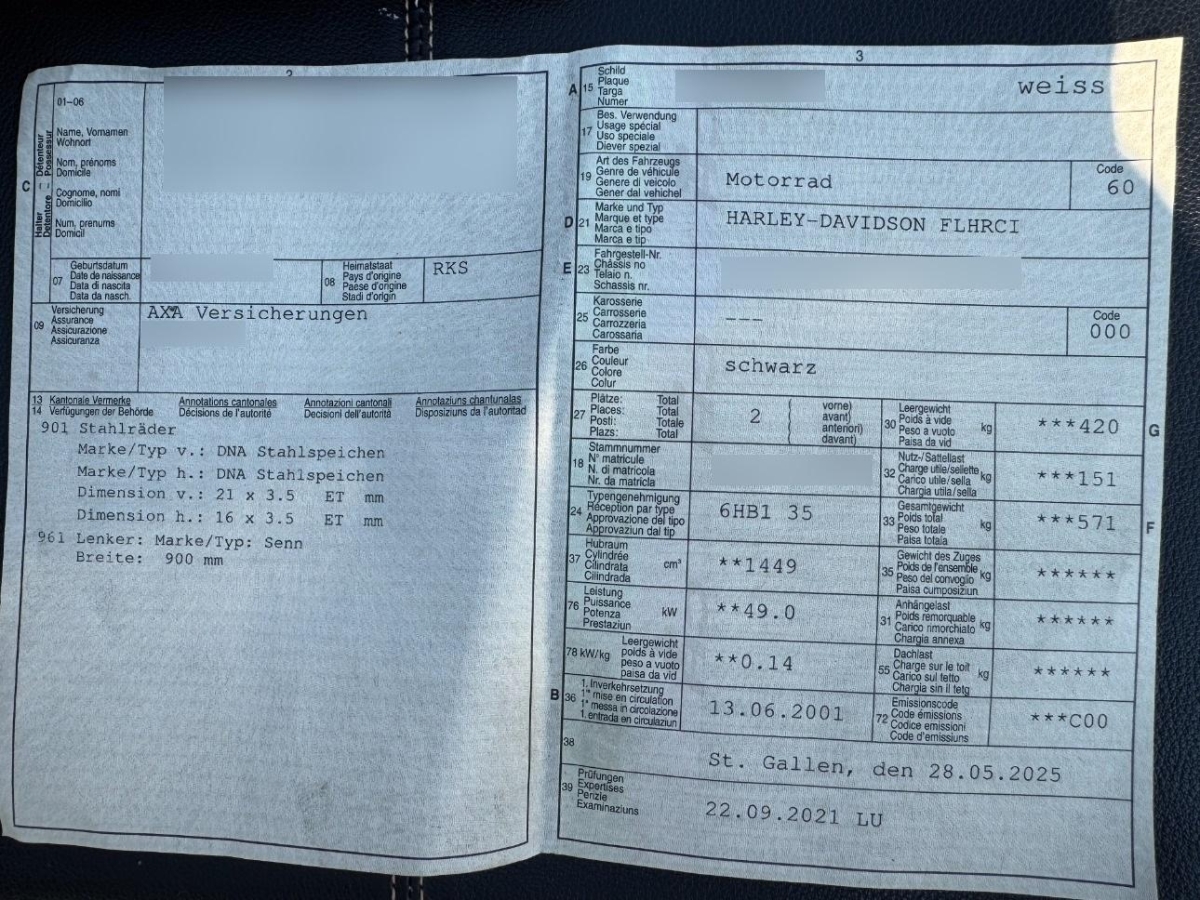 2
01-06
C
Halter Détenteur
Detentore Possessur
Name, Vornamen
Wohnort
Nom, prénoms
Domicile
Cognome, nomi
Domicilio
Num, prenums
Domicil
07
Geburtsdatum
Date de naissance
Data di nascita
Data da nasch.
08
Heimatstaat
Pays d'origine
Paese d'origine
Stadi d'origin
RKS
09
Versicherung
Assurance
Assicurazione
Assicuranza
AXA Versicherungen
13 Kantonale Vermerke Annotations cantonales Annotazioni cantonali Annotaziuns chantunalas
14 Verfügungen der Behörde Décisions de l'autorité Decisioni dell'autorità Disposiziuns da l'autoritad
901 Stahlräder
Marke/Typ v.: DNA Stahlspeichen
Marke/Typ h.: DNA Stahlspeichen
Dimension v.: 21 x 3.5 ET mm
Dimension h.: 16 x 3.5 ET mm
961 Lenker: Marke/Typ: Senn
Breite: 900 mm
3
A 15
Schild
Plaque
Targa
Numer
weiss
17
Bes. Verwendung
Usage spécial
Uso speciale
Diever spezial
19
Art des Fahrzeugs
Genre de véhicule
Genere di veicolo
Gener dal vehichel
Motorrad
Code
60
D 21
Marke und Typ
Marque et type
Marca e tipo
Marca e tip
HARLEY-DAVIDSON FLHRCI
E 23
Fahrgestell-Nr.
Châssis no
Telaio n.
Schassis nr.
25
Karosserie
Carrosserie
Carrozzeria
Carossaria
---
Code
000
26
Farbe
Couleur
Colore
Colur
schwarz
27
Plätze: Total
Places: Total
Posti: Totale
Plazs: Total
2
vorne)
avant)
anteriori)
davant)
30
Leergewicht
Poids à vide
Peso a vuoto
Paisa da vid
kg
***420
G
18
Stammnummer
N° matricule
N. di matricola
Nr. da matricla
32
Nutz-/Sattellast
Charge utile/sellette
Carico utile/sella
Chargia utila/sella
kg
***151
24
Typengenehmigung
Réception par type
Approvazione del tipo
Approvaziun dal tip
6HB1 35
33
Gesamtgewicht
Poids total
Peso totale
Paisa totala
kg
***571
F
37
Hubraum
Cylindrée
Cilindrata
Cilindrada
cm³
**1449
35
Gewicht des Zuges
Poids de l'ensemble
Peso del convoglio
Paisa cumposiziun
kg
******
76
Leistung
Puissance
Potenza
Prestaziun
kW
**49.0
31
Anhängelast
Poids remorquable
Carico rimorchiato
Chargia annexa
kg
******
78 kW/kg
Leergewicht
poids à vide
peso a vuoto
paisa da vid
**0.14
55
Dachlast
Charge sur le toit
Carico sul tetto
Chargia sin il tetg
kg
******
B 36
1. Inverkehrsetzung
1re mise en circulation
1a messa in circolazione
1. entrada en circulaziun
13.06.2001
72
Emissionscode
Code émissions
Codice emissioni
Code d'emissiuns
***C00
38
St. Gallen, den 28.05.2025
39
Prüfungen
Expertises
Perizie
Examinaziuns
22.09.2021 LU